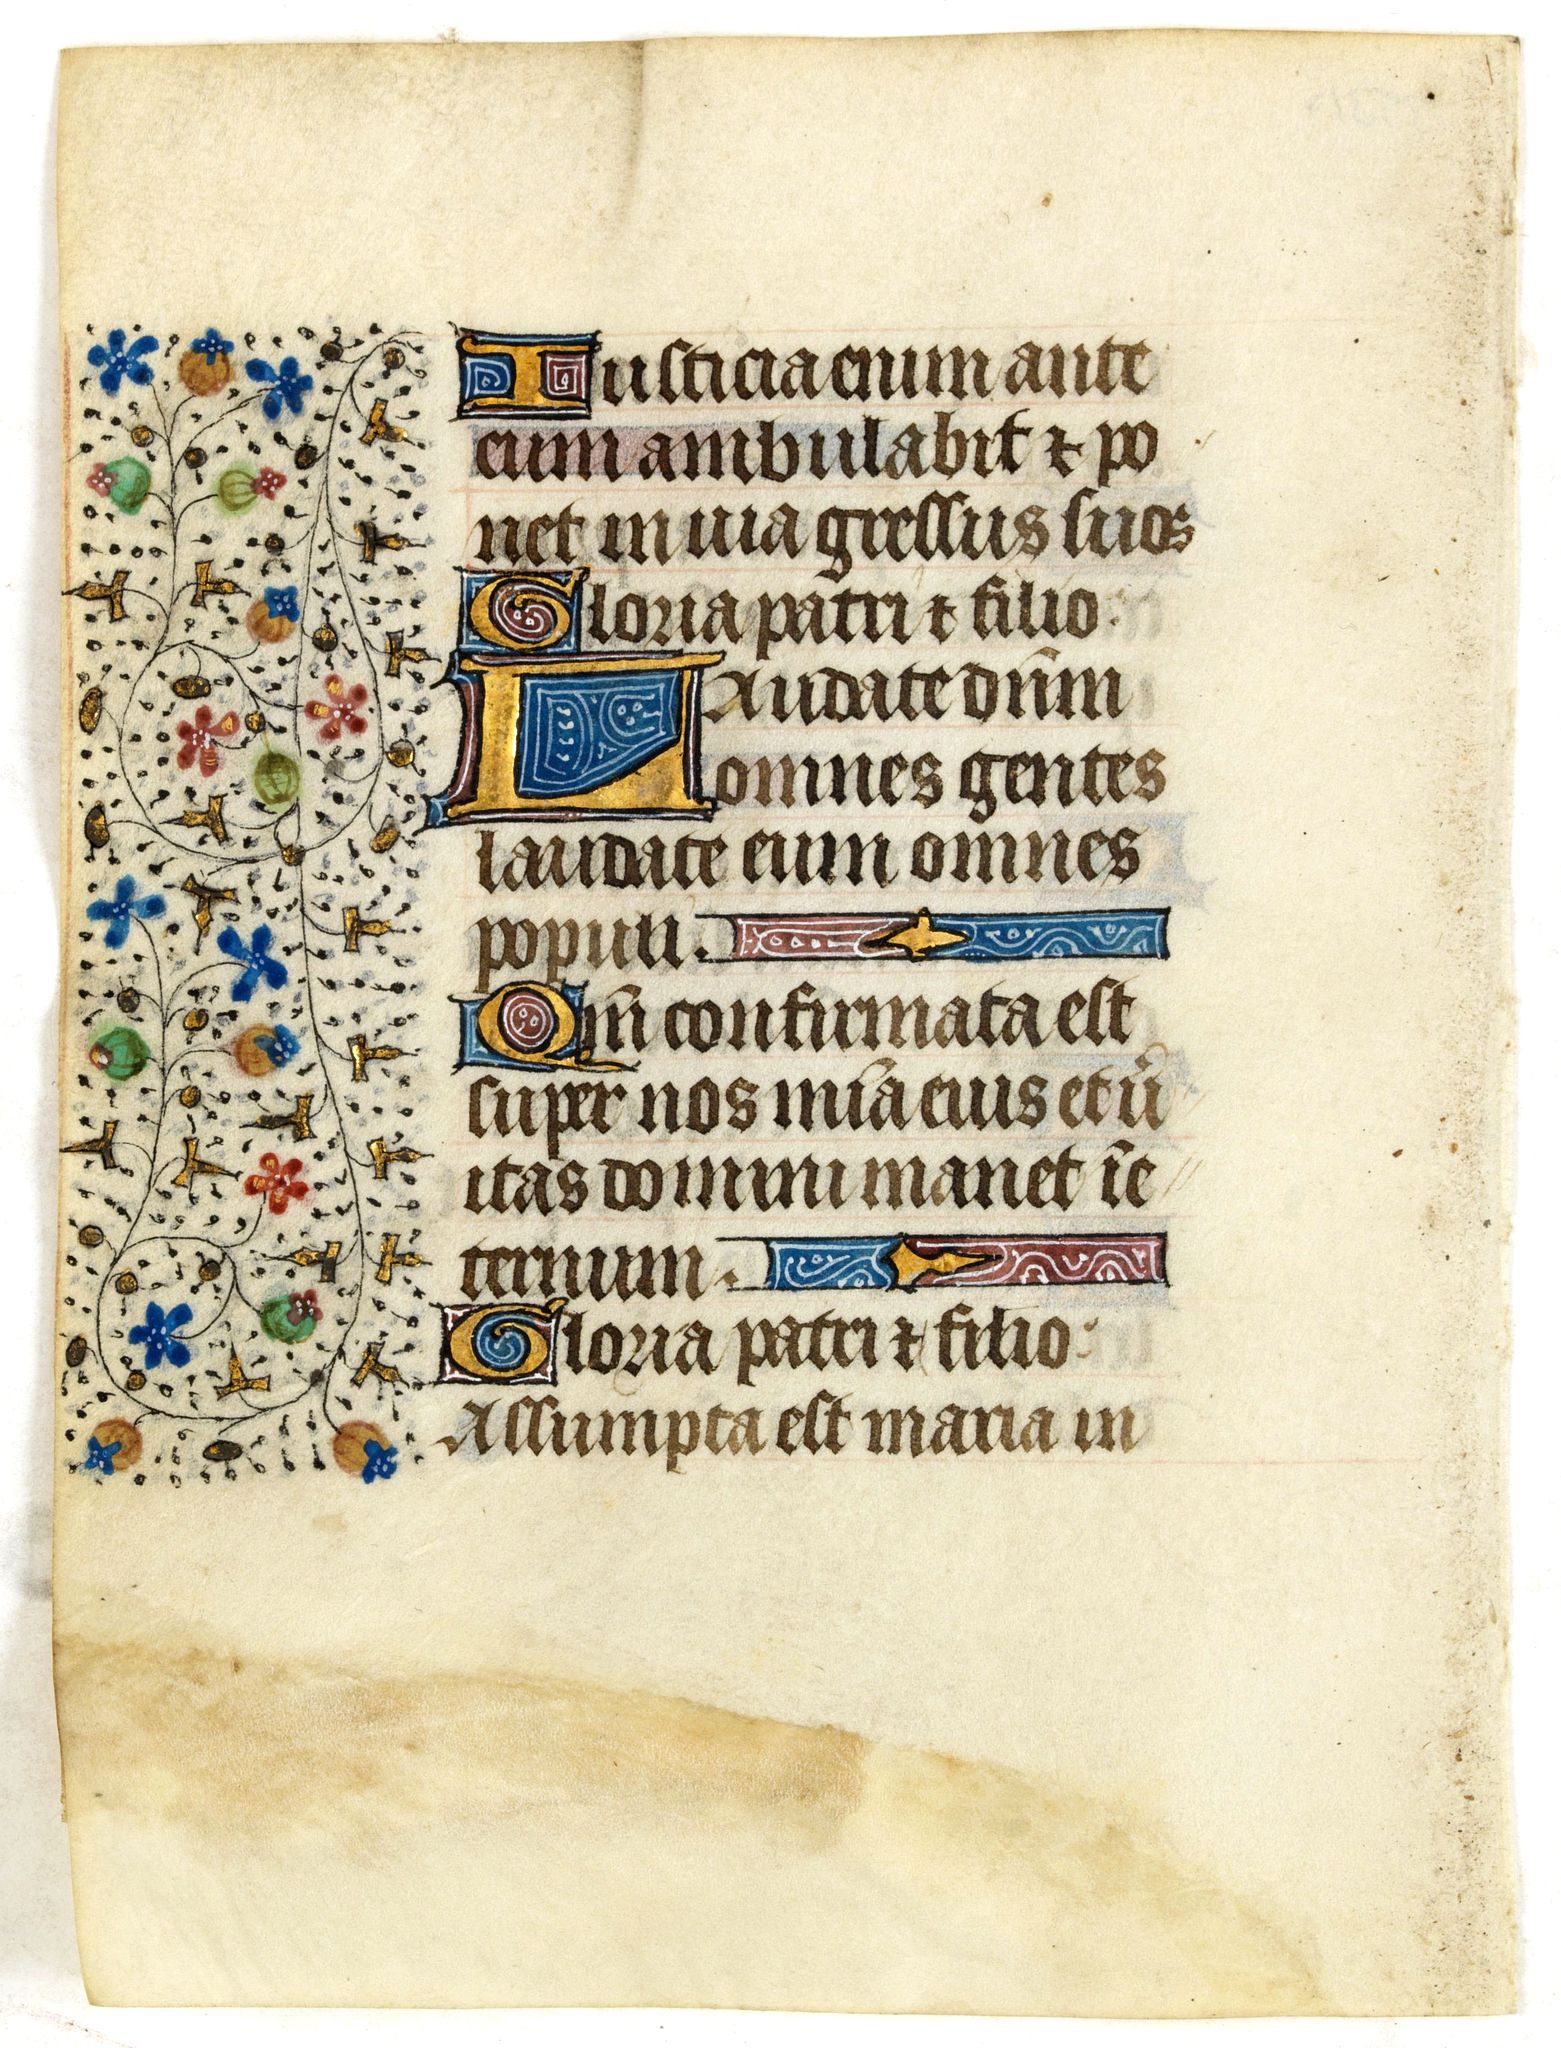 Iusticia enim ante
eum ambulabit ⁊ po
net in uia gressus suos
Gloria patri ⁊ filio.
Laudate dn̄m
omnes gentes
laudate eum omnes
populi.
Qm̄ confirmata est
super nos mīa eius et ū
itas domini manet īe
ternum.
Gloria patri ⁊ filio.
Assumpta est maria in